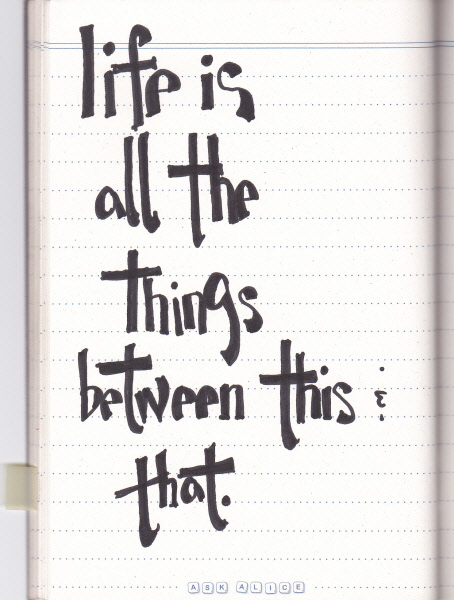 life is
all the
things
between this &
that.
ASK ALICE